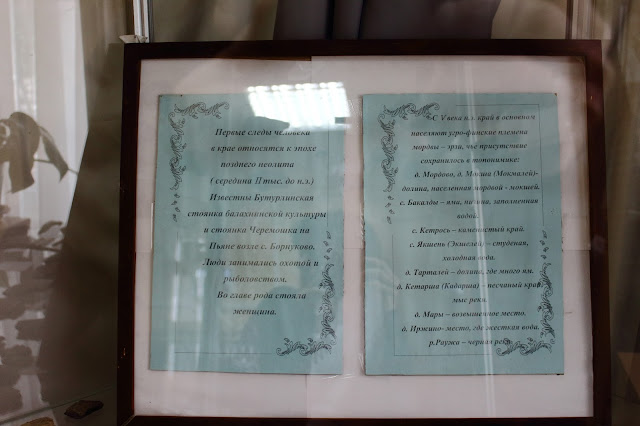 Первые следы человека
в крае относятся к эпохе
позднего неолита
( середина II тыс. до н.л.)
Известны Бутурлинская
стоянка балахнинской культуры
и стоянка Черемошка на
Пьяне возле с. Борнуково.
Люди занимались охотой и
рыболовством.
Во главе рода стояла
женщина.
С V века н.л. край в основном
населяют угро-финские племена
мордвы – эрзи, чье присутствие
сохранилось в топонимике:
д. Мордово, д. Мокша (Мокмалей)-
долина, населенная мордвой - мокшей.
с. Бакалды – яма, заполненная
водой.
с. Кетрось – каменистый край.
с. Якшень (Экшелей) – студеная,
холодная вода.
д. Тарталей – долина, где много ям.
д. Кетария (Кадарша) песчаный край,
мыс реки.
д. Мары – возвышенное место.
д. Иржино- место, где жесткая вода.
р.Рауже – черная река.